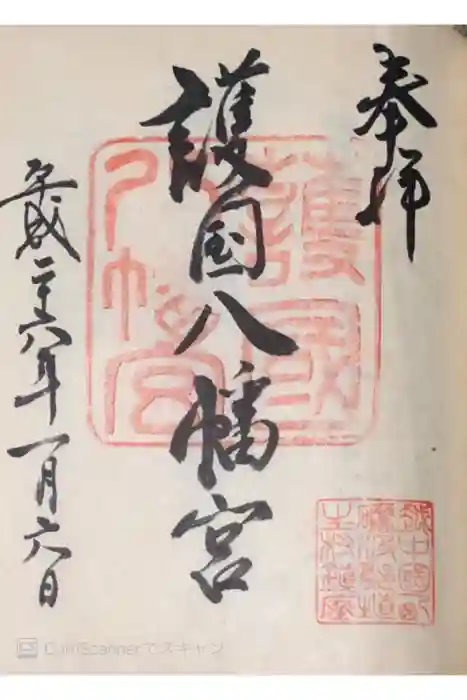 奉拝
護国八幡宮
平成二十六年一月六日
護國
八幡宮
CamScannerでスキャン